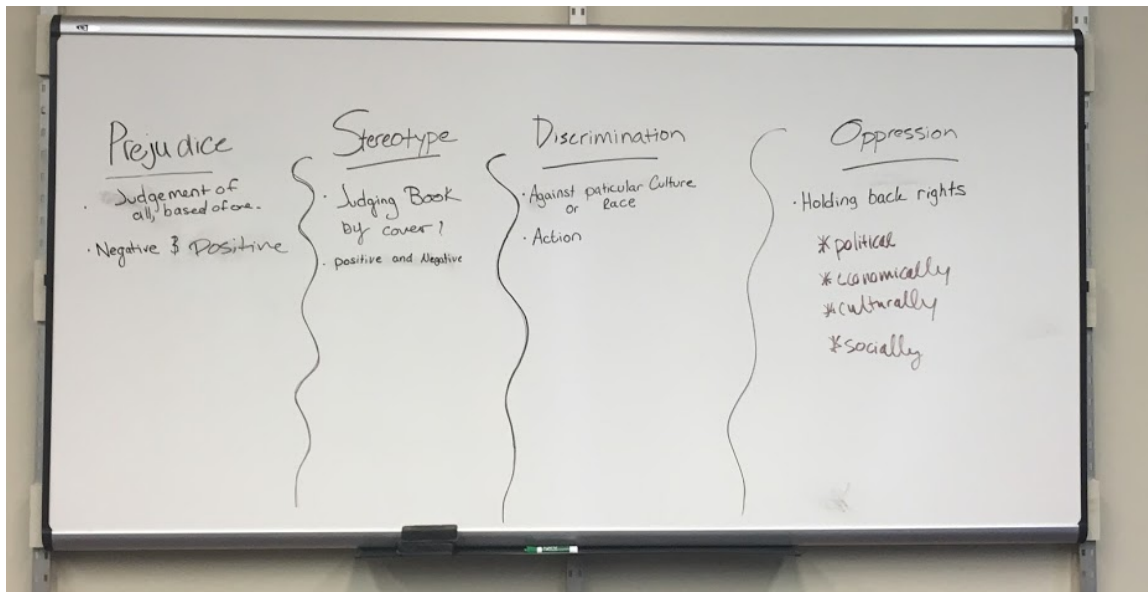 Prejudice
· Judgement of
all, based of one.
· Negative & Positive
Stereotype
· Judging Book
by cover!
· positive and Negative
Discrimination
· Against paticular Culture
or Race
· Action
Oppression
· Holding back rights
* political
* economically
* culturally
* socially